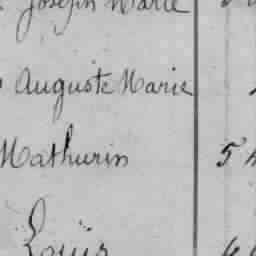 Joseph Marie
Auguste Marie
Mathurin 5
Louis